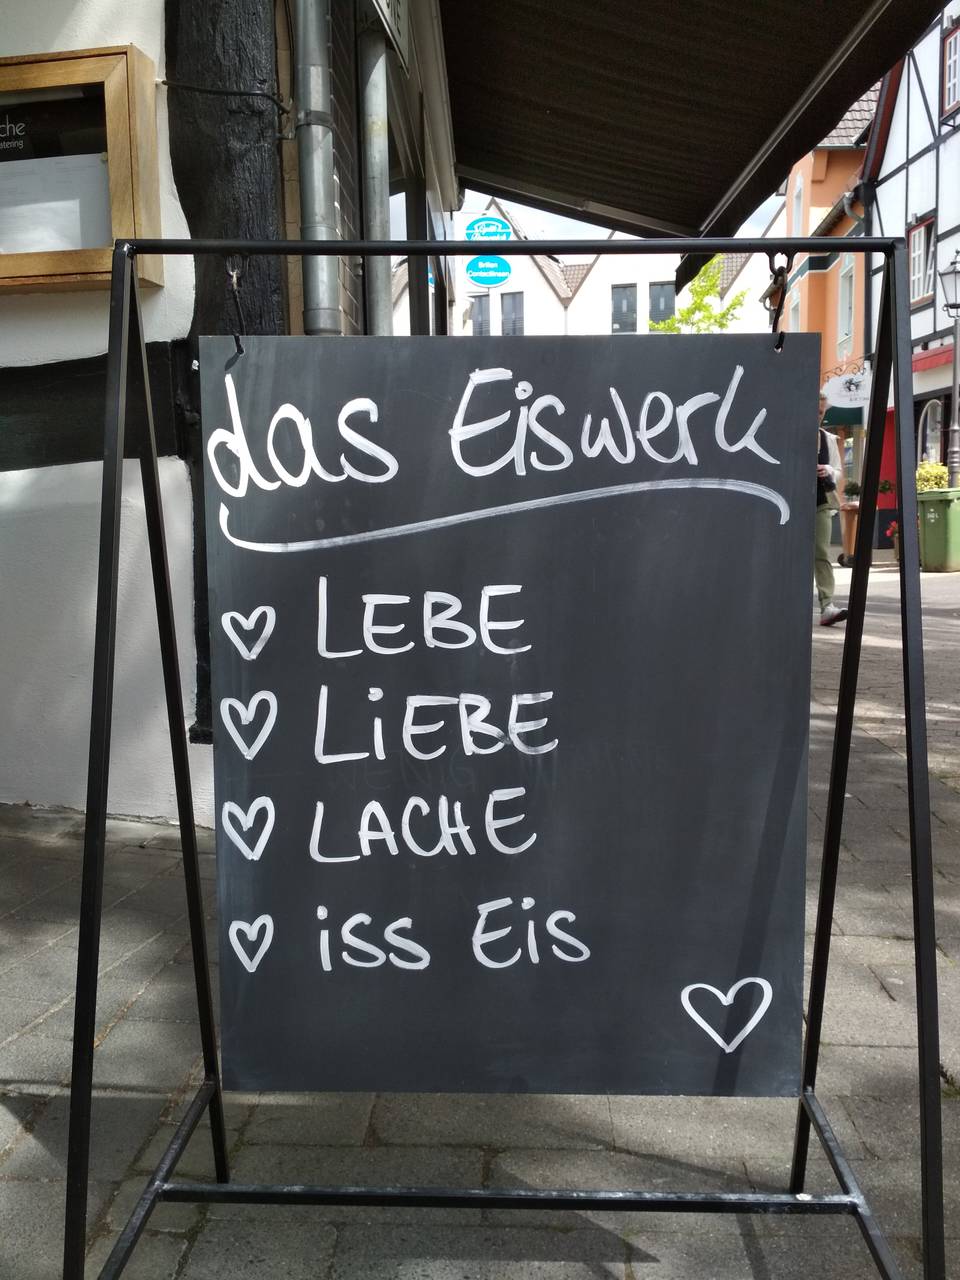 das Eiswerk
LEBE
LiEBE
LACHE
iss Eis
Brillen
Contactlinsen